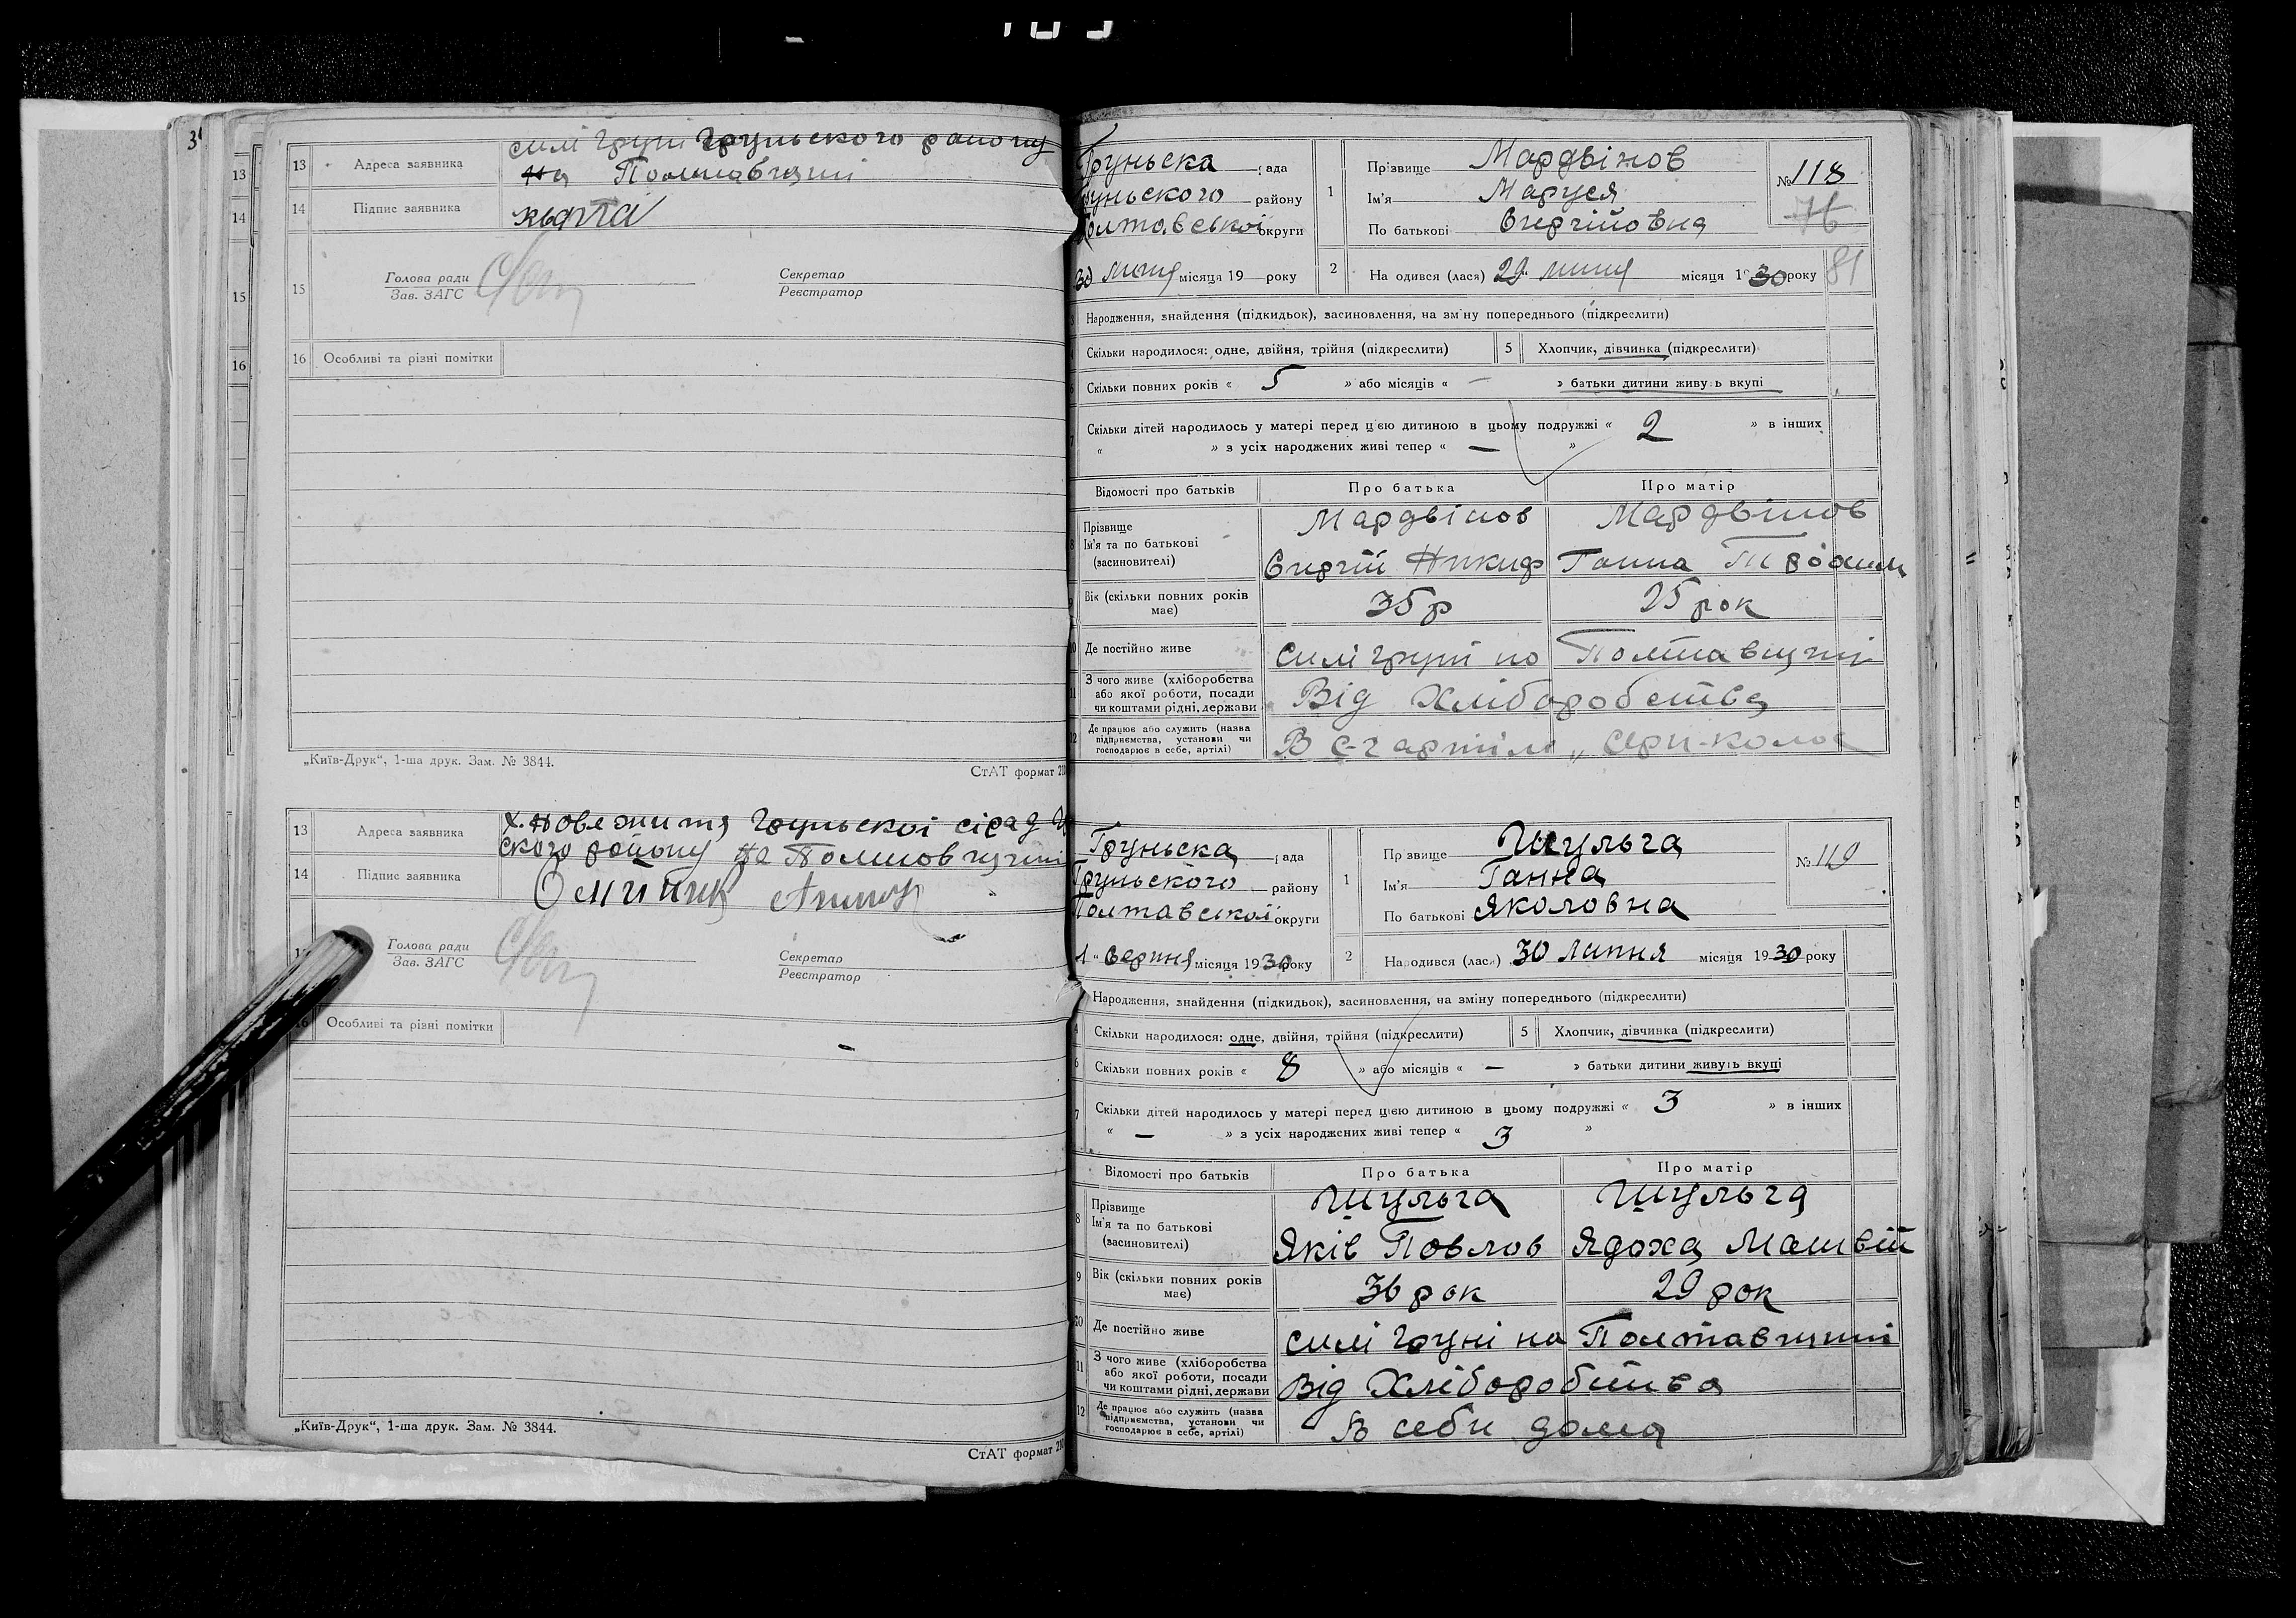 13 Адреса заявника силі Груні Груньского району
на Полтавщині
14 Підпис заявника
15 Голова ради Секретар
Зав. ЗАГС Реєстратор
16 Особливі та різні помітки
„Київ-Друк“, 1-ша друк. Зам. № 3844.
СтАТ формат
13 Адреса заявника х. Нове життя Груньскої сірад
ского району на Полтавщині
14 Підпис заявника
Голова ради Секретар
Зав. ЗАГС Реєстратор
16 Особливі та різні помітки
„Київ-Друк“, 1-ша друк. Зам. № 3844.
СтАТ формат
Груньска рада
району
округи
1 Прізвище Мардвінов
Ім'я Маруся
По батькові Сергійовна
№ 118
76
81
30 липня місяця 19 року
2 На одився (лася) 29 липня місяця 1930 року
Народження, знайдення (підкидьок), засиновлення, на зміну попереднього (підкреслити)
Скільки народилося: одне, двійня, трійня (підкреслити) 5 Хлопчик, дівчинка (підкреслити)
Скільки повних років « 5 » або місяців « — » батьки дитини живуть вкупі
Скільки дітей народилось у матері перед цією дитиною в цьому подружжі « 2 » в інших
« » з усіх народжених живі тепер « — »
Відомості про батьків Про батька Про матір
Прізвище Мардвінов Мардвінов
Ім'я та по батькові
(засиновителі) Сергій Никиф Ганна
Вік (скільки повних років
має) 35 р 25 рок
Де постійно живе силі Груні на Полтавщині
З чого живе (хліборобства
або якої роботи, посади
чи коштами рідні, держави Від Хліборобства
Де працює або служить (назва
підприємства, установи чи
господарює в себе, артілі) В с-г артіли „Серп-колос
Груньска рада
Груньского району
Полтавської округи
1 Пр звище Шульга
Ім'я Ганна
По батькові Яколовна
№ 119
1 " Серпня місяця 1930 року
2 Народився (лася) 30 Липня місяця 1930 року
Народження, знайдення (підкидьок), засиновлення, на зміну попереднього (підкреслити)
4 Скільки народилося: одне, двійня, трійня (підкреслити) 5 Хлопчик, дівчинка (підкреслити)
6 Скільки повних років « 8 » або місяців « — » батьки дитини живуть вкупі
7 Скільки дітей народилось у матері перед цією дитиною в цьому подружжі « 3 » в інших
« — » з усіх народжених живі тепер « 3 »
Відомості про батьків Про батька Про матір
8 Прізвище Шульга Шульга
Ім'я та по батькові
(засиновителі) Яків Повлов Ядоха Матвій
9 Вік (скільки повних років
має) 36 рок 29 рок
10 Де постійно живе силі Груні на Полтавщині
11 З чого живе (хліборобства
або якої роботи, посади
чи коштами рідні, держави Від Хліборобства
12 Де працює або служить (назва
підприємства, установи чи
господарює в себе, артілі) В себи дома